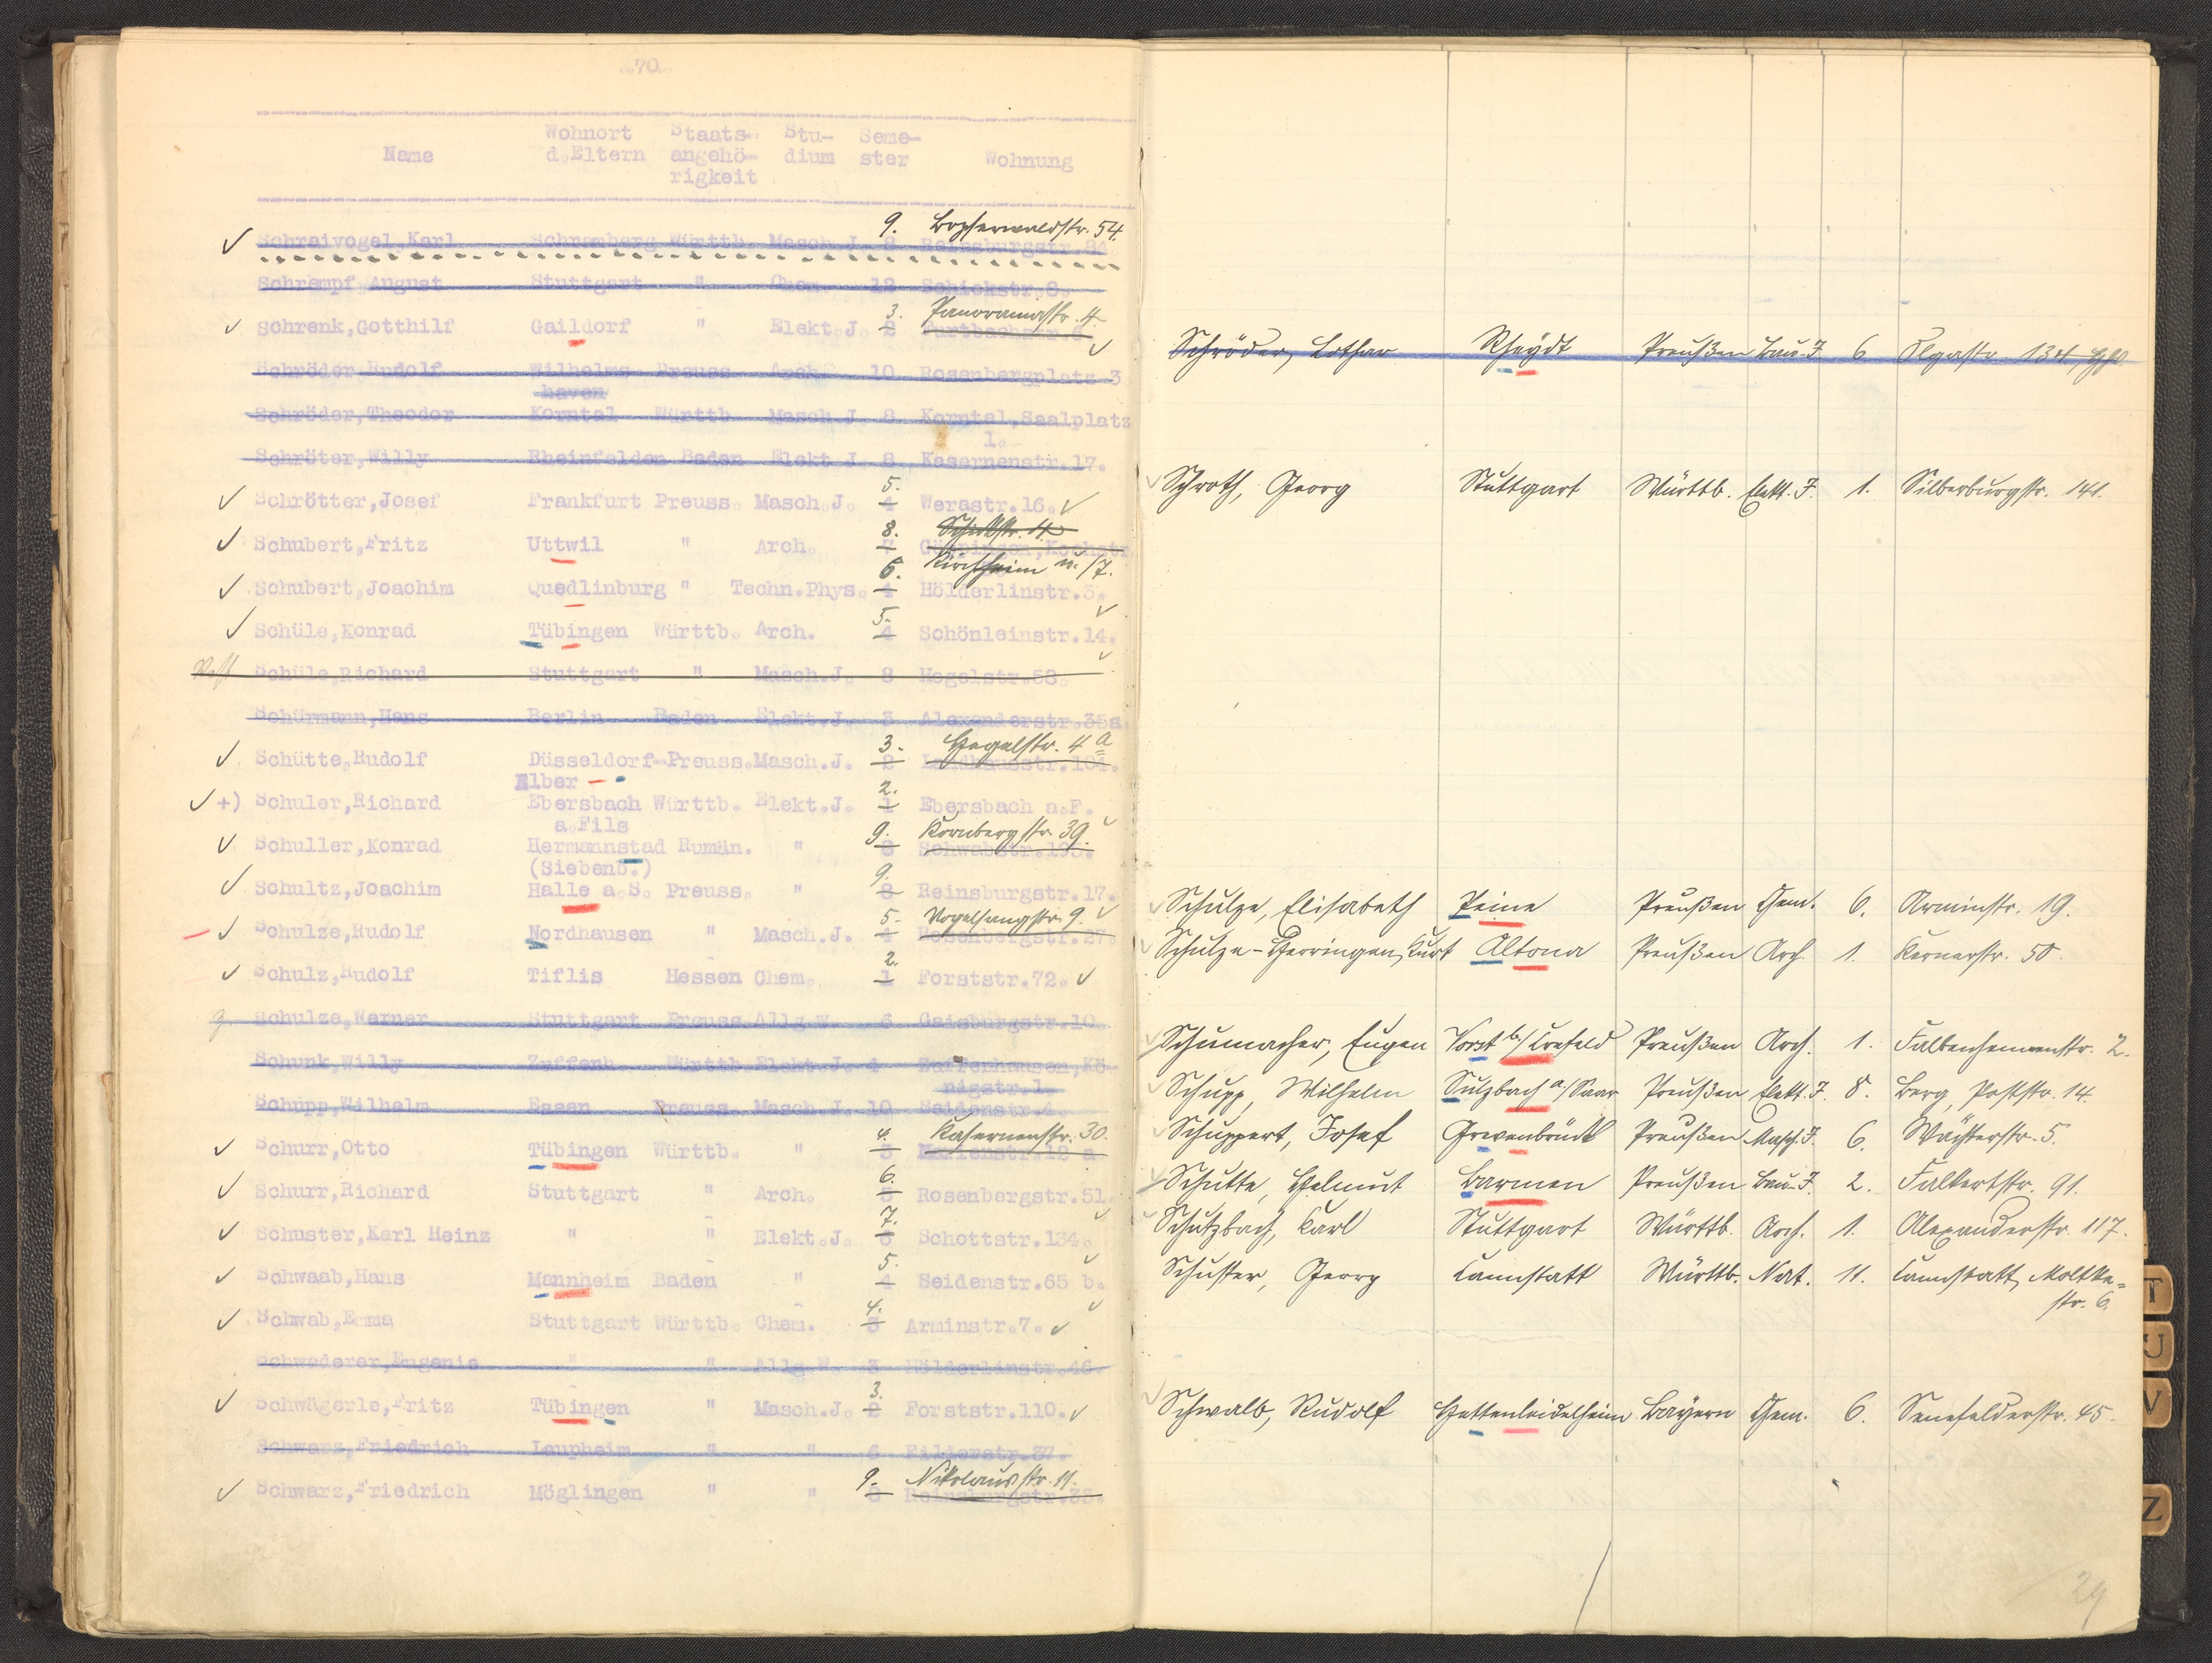 -70-
Name Wohnort d.Eltern Staats- angehö- rigkeit Stu- dium Seme- ster Wohnung
9. Bopserwaldstr. 54.
Schraivogel,Karl Schramberg Württb. Masch.J. 8 Reinsburgstr.84
Schrempf,August Stuttgart " Chem. 12 Schickstr.8.
3. Panoramastr. 4.
Schrenk,Gotthilf Gaildorf " Elekt.J. 2
Schröder,Rudolf Wilhelms- Preuss. Arch. 10 Rosenbergplatz 3
haven
Schröder,Theodor Korntal Württb. Masch.J. 8 Korntal,Saalplatz
1.
Schröter,Willy Rheinfelden Baden Elekt.J. 8 Kasernenstr.17.
5.
Schrötter,Josef Frankfurt Preuss. Masch.J. 4 Werastr.16.
8. Schickstr. 4
Schubert,Fritz Uttwil " Arch. 7 Göppingen,
6. Kirchheim u./T.
Schubert,Joachim Quedlinburg " Techn.Phys. 4 Hölderlinstr.3.
5.
Schüle,Konrad Tübingen Württb. Arch. 4 Schönleinstr.14.
Schüle,Richard Stuttgart " Masch.J. 8 Hegelstr.58.
Schürmann,Hans Berlin Baden Elekt.J. 3 Alexanderstr.35a
3. Hegelstr. 4 a
Schütte,Rudolf Düsseldorf-Preuss.Masch.J. 2 Landhausstr.104.
Elber
2.
+) Schuler,Richard Ebersbach Württb. Elekt.J. 1 Ebersbach a.F.
a.Fils
9. Kornbergstr. 39.
Schuller,Konrad Hermannstad Rumän. " 8 Schwabstr.193.
(Siebenb.)
9.
Schultz,Joachim Halle a.S. Preuss. " 8 Reinsburgstr.17.
5. Vogelsangstr. 9.
Schulze,Rudolf Nordhausen " Masch.J. 4 Rosenbergstr.27.
2.
Schulz,Rudolf Tiflis Hessen Chem. 1 Forststr.72.
Schulze,Werner Stuttgart Preuss.Allg.W. 6 Gaisburgstr.10.
Schunk,Willy Zuffenh. Württb.Elekt.J. 4 Zuffenhausen,Kö-
nigstr.1.
Schupp,Wilhelm Essen Preuss. Masch.J. 10 Seidenstr.4.
4. Kasernenstr. 30.
Schurr,Otto Tübingen Württb. " 3
6.
Schurr,Richard Stuttgart " Arch. 5 Rosenbergstr.51.
7.
Schuster,Karl Heinz " " Elekt.J. 6 Schottstr.134.
5.
Schwaab,Hans Mannheim Baden " 4 Seidenstr.65 b.
4.
Schwab,Emma Stuttgart Württb. Chem. 3 Arminstr.7.
Schwaderer,Eugenie " " Allg.W. 3 Hölderlinstr.46.
3.
Schwägerle,Fritz Tübingen " Masch.J. 2 Forststr.110.
Schwarz,Friedrich Laupheim " " 6 Filderstr.37.
9. Nikolausstr. 11.
Schwarz,Friedrich Möglingen " " 8 Reinsburgstr.33.
Schröder, Lothar Rheydt Preußen Bau-J. 6 Olgastr. 134,
Schroth, Georg Stuttgart Württb. Elekt. J. 1. Silberburgstr. 141.
Schulze, Elisabeth Peine Preußen Chem. 6. Arminstr. 19.
Schulze-Herringen, Kurt Altona Preußen Arch. 1. Kernerstr. 50.
Schumacher, Eugen Vorst b./Crefeld Preußen Arch. 1. Falkenhennenstr. 2.
Schupp, Wilhelm Sulzbach a./Saar Preußen Elekt. J. 8. Berg, Poststr. 14.
Schuppert, Josef Grevenbrück Preußen Masch. J. 6. Wächterstr. 5.
Schutte, Helmut Barmen Preußen Bau-J. 2. Falkertstr. 91.
Schutzbach, Karl Stuttgart Württb. Arch. 1. Alexanderstr. 117.
Schuster, Georg Cannstatt Württb. Nat. 11. Cannstatt, Moltke-
str. 6.
Schwalb, Rudolf Hettenleidelheim Bayern Chem. 6. Senefelderstr. 45.
29
T
U
V
Z